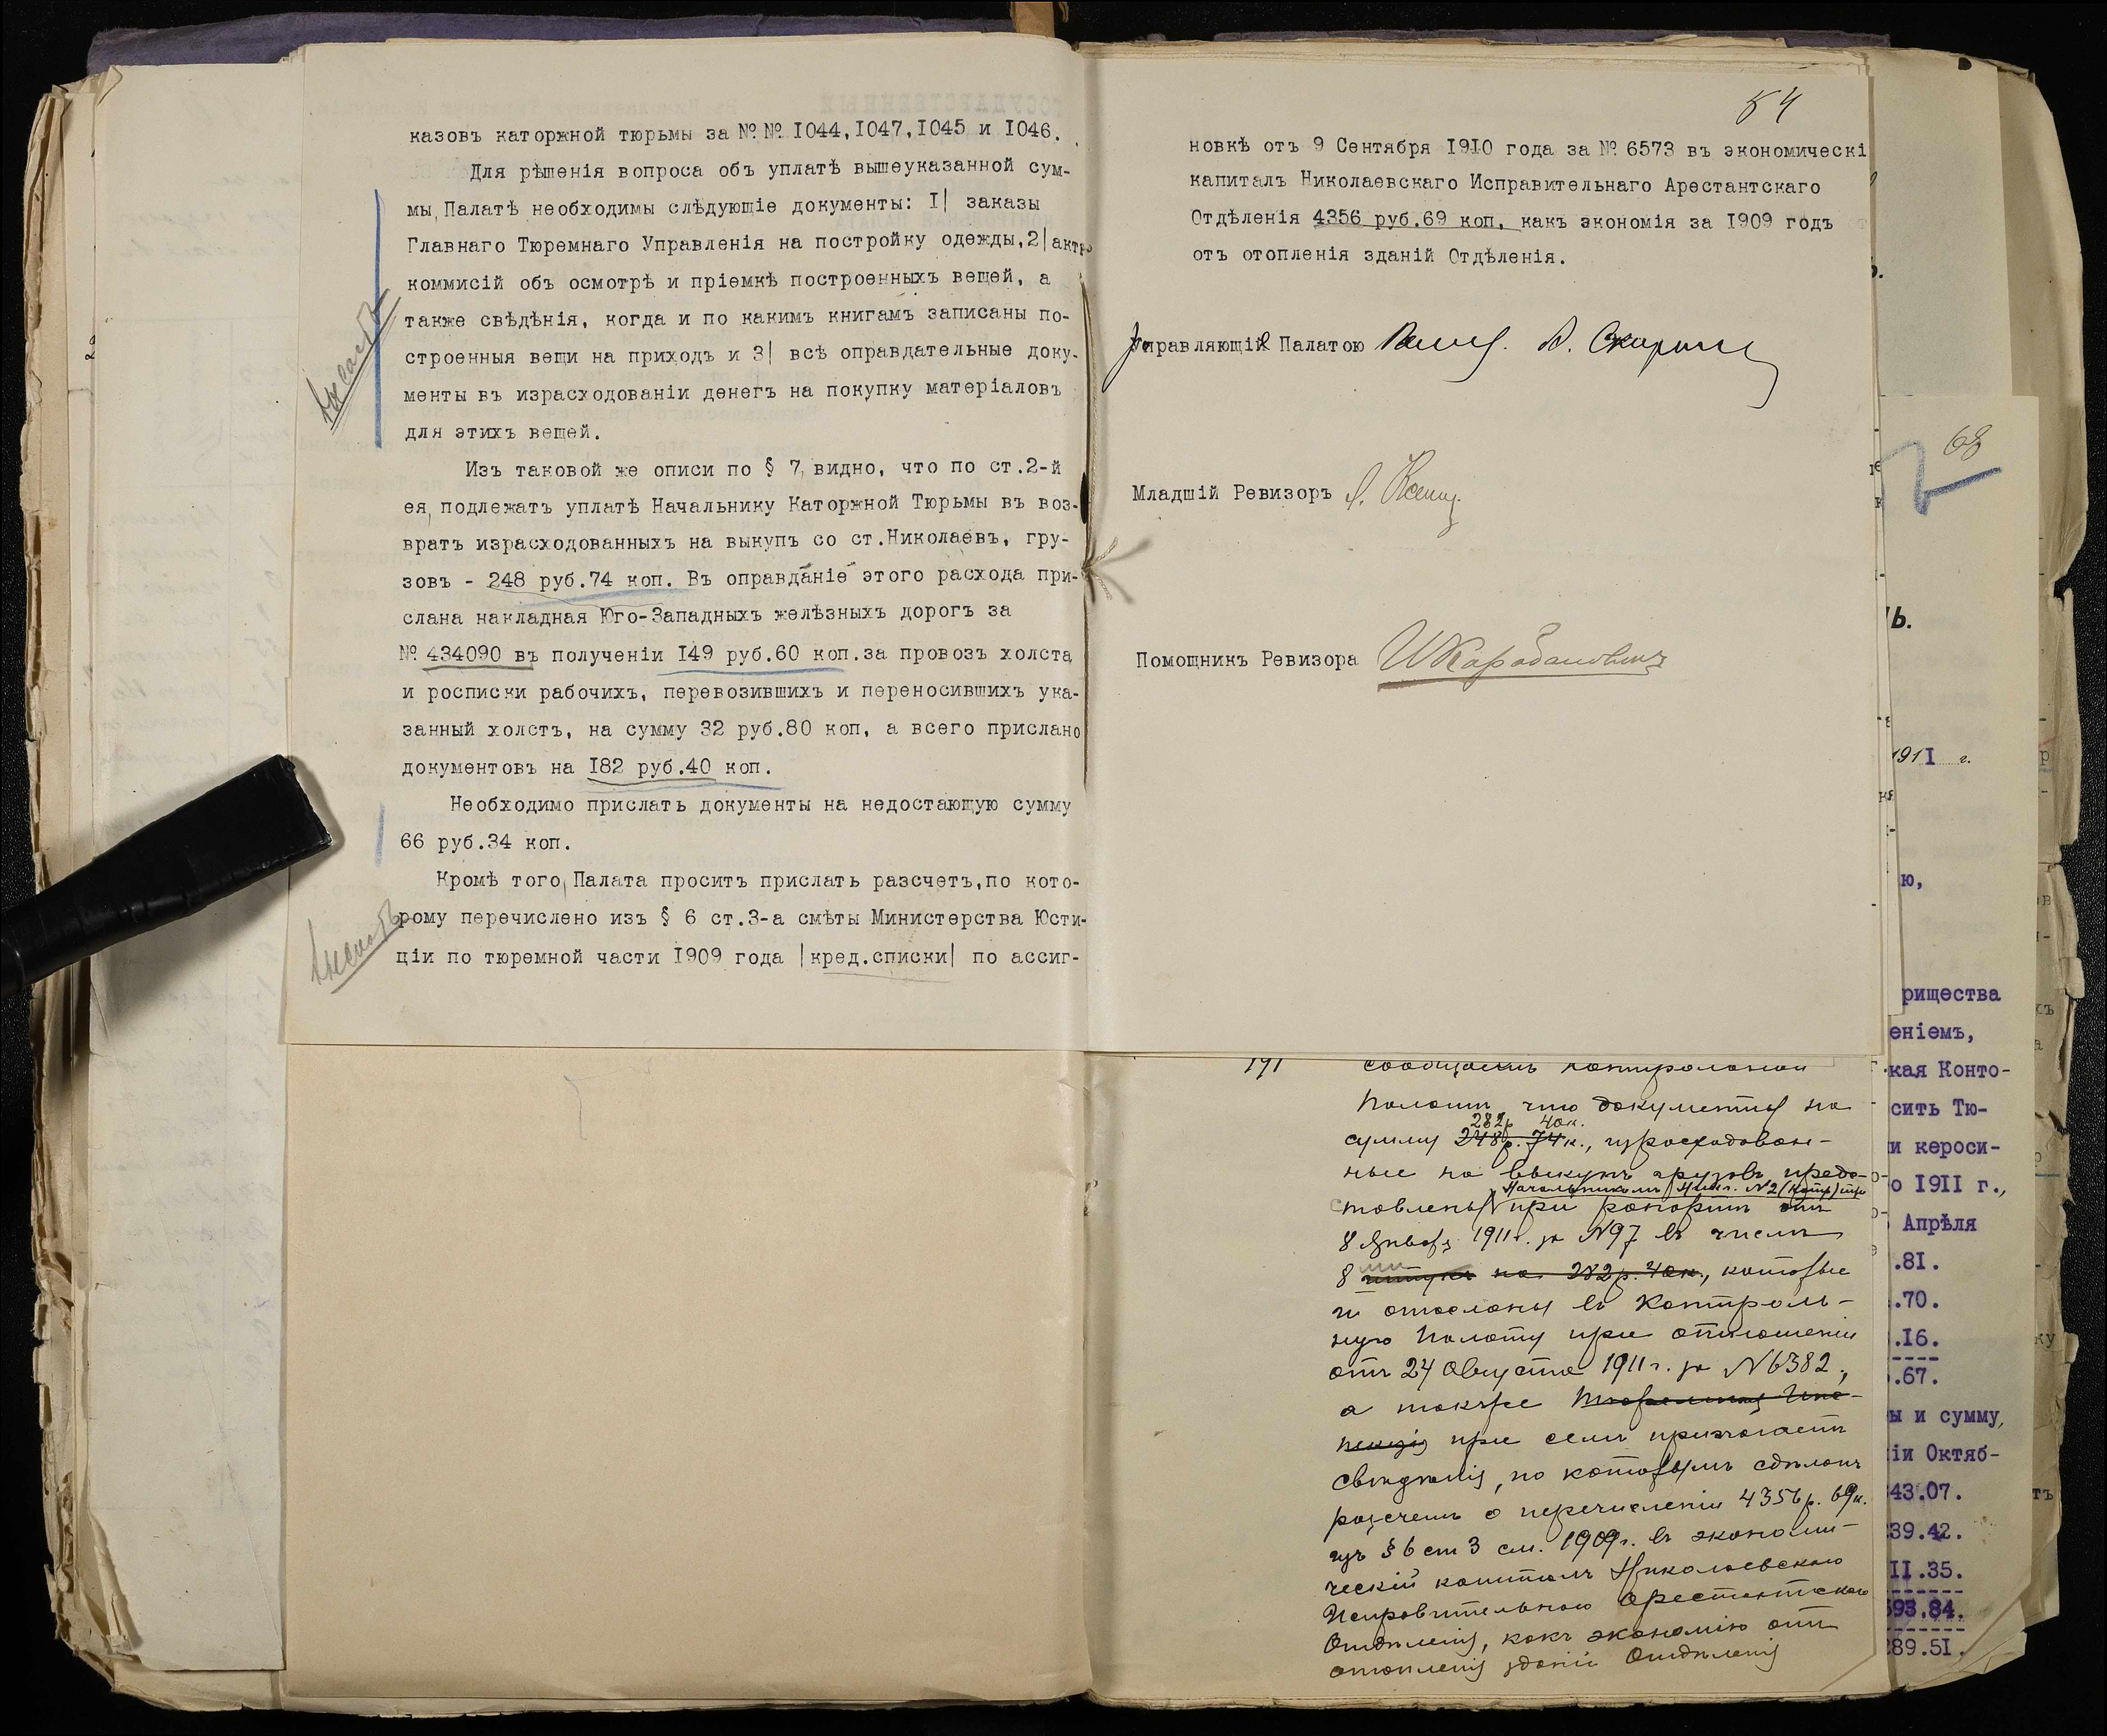 казовъ каторжной тюрьмы за №№ I044,I047,I045 и I046.
Для рѣшенія вопроса объ уплатѣ вышеуказанной сум-
мы, Палатѣ необходимы слѣдующіе документы: I| заказы
Главнаго Тюремнаго Управленія на постройку одежды,2|акты
коммисій объ осмотрѣ и пріемкѣ построенныхъ вещей, а
также свѣдѣнія, когда и по какимъ книгамъ записаны по-
строенныя вещи на приходъ и 3| всѣ оправдательные доку-
менты въ израсходованіи денегъ на покупку матеріаловъ
для этихъ вещей.
Изъ таковой же описи по § 7, видно, что по ст.2-й
ея, подлежатъ уплатѣ Начальнику Каторжной Тюрьмы въ воз-
вратъ израсходованныхъ на выкупъ со ст.Николаевъ, гру-
зовъ - 248 руб.74 коп. Въ оправданіе этого расхода при-
слана накладная Юго-Западныхъ желѣзныхъ дорогъ за
№ 434090 въ полученіи I49 руб.60 коп.за провозъ холста
и росписки рабочихъ, перевозившихъ и переносившихъ ука-
занный холстъ, на сумму 32 руб.80 коп, а всего прислано
документовъ на I82 руб.40 коп.
Необходимо прислать документы на недостающую сумму
66 руб.34 коп.
Кромѣ того, Палата проситъ прислать разсчетъ,по кото-
рому перечислено изъ § 6 ст.3-а смѣты Министерства Юсти-
ціи по тюремной части I909 года |кред.списки| по ассиг-
54
новкѣ отъ 9 Сентября I9I0 года за № 6573 въ экономическі
капиталъ Николаевскаго Исправительнаго Арестантскаго
Отдѣленія 4356 руб.69 коп, какъ экономія за I909 годъ
отъ отопленія зданій Отдѣленія.
Управляющій Палатою
Младшій Ревизоръ
Помощникъ Ревизора
191 сообщаетъ Контрольной
Палатѣ, что документы на
282р. 40к.
сумму 248р. 74к., израсходован-
ные на выкупъ грузовъ, предс-
Начальникомъ Ник. №2 (катр)
тавлены при рапортѣ отъ
8 Января 1911г. за №97 въ числѣ
8 штукъ на 282р. 40к, которые
и отосланы въ Контроль-
ную Палату при отношеніи
отъ 24 Августа 1911г. за №6382,
а также Тюремная Инс-
пекція при семъ прилагаетъ
свѣдѣнія, по которымъ сдѣланъ
разсчетъ о перечисленіи 4356р. 69к.
изъ §6 ст 3 см. 1909г. въ экономи-
ческій капиталъ Николаевскаго
Исправительнаго Арестантскаго
Отдѣленія, какъ экономію отъ
отопленія зданій Отдѣленія
68
1911 г.
ю,
рищества
еніемъ,
кая Конто-
сить Тю-
и кероси-
о I9II г.,
Апрѣля
.8I.
.70.
.I6.
.67.
ы и сумму,
іи Октяб-
43.07.
39.42.
II.35.
93.84.
289.5I.